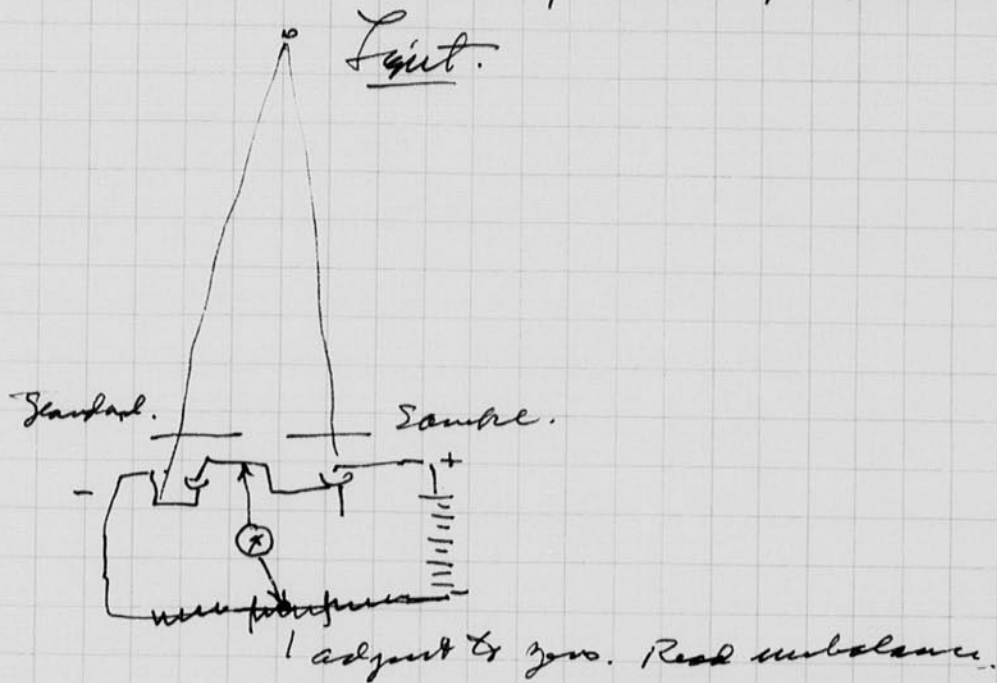 Light.
Standard.
Sample.
-
+
-
adjust to zero. Read unbalance.